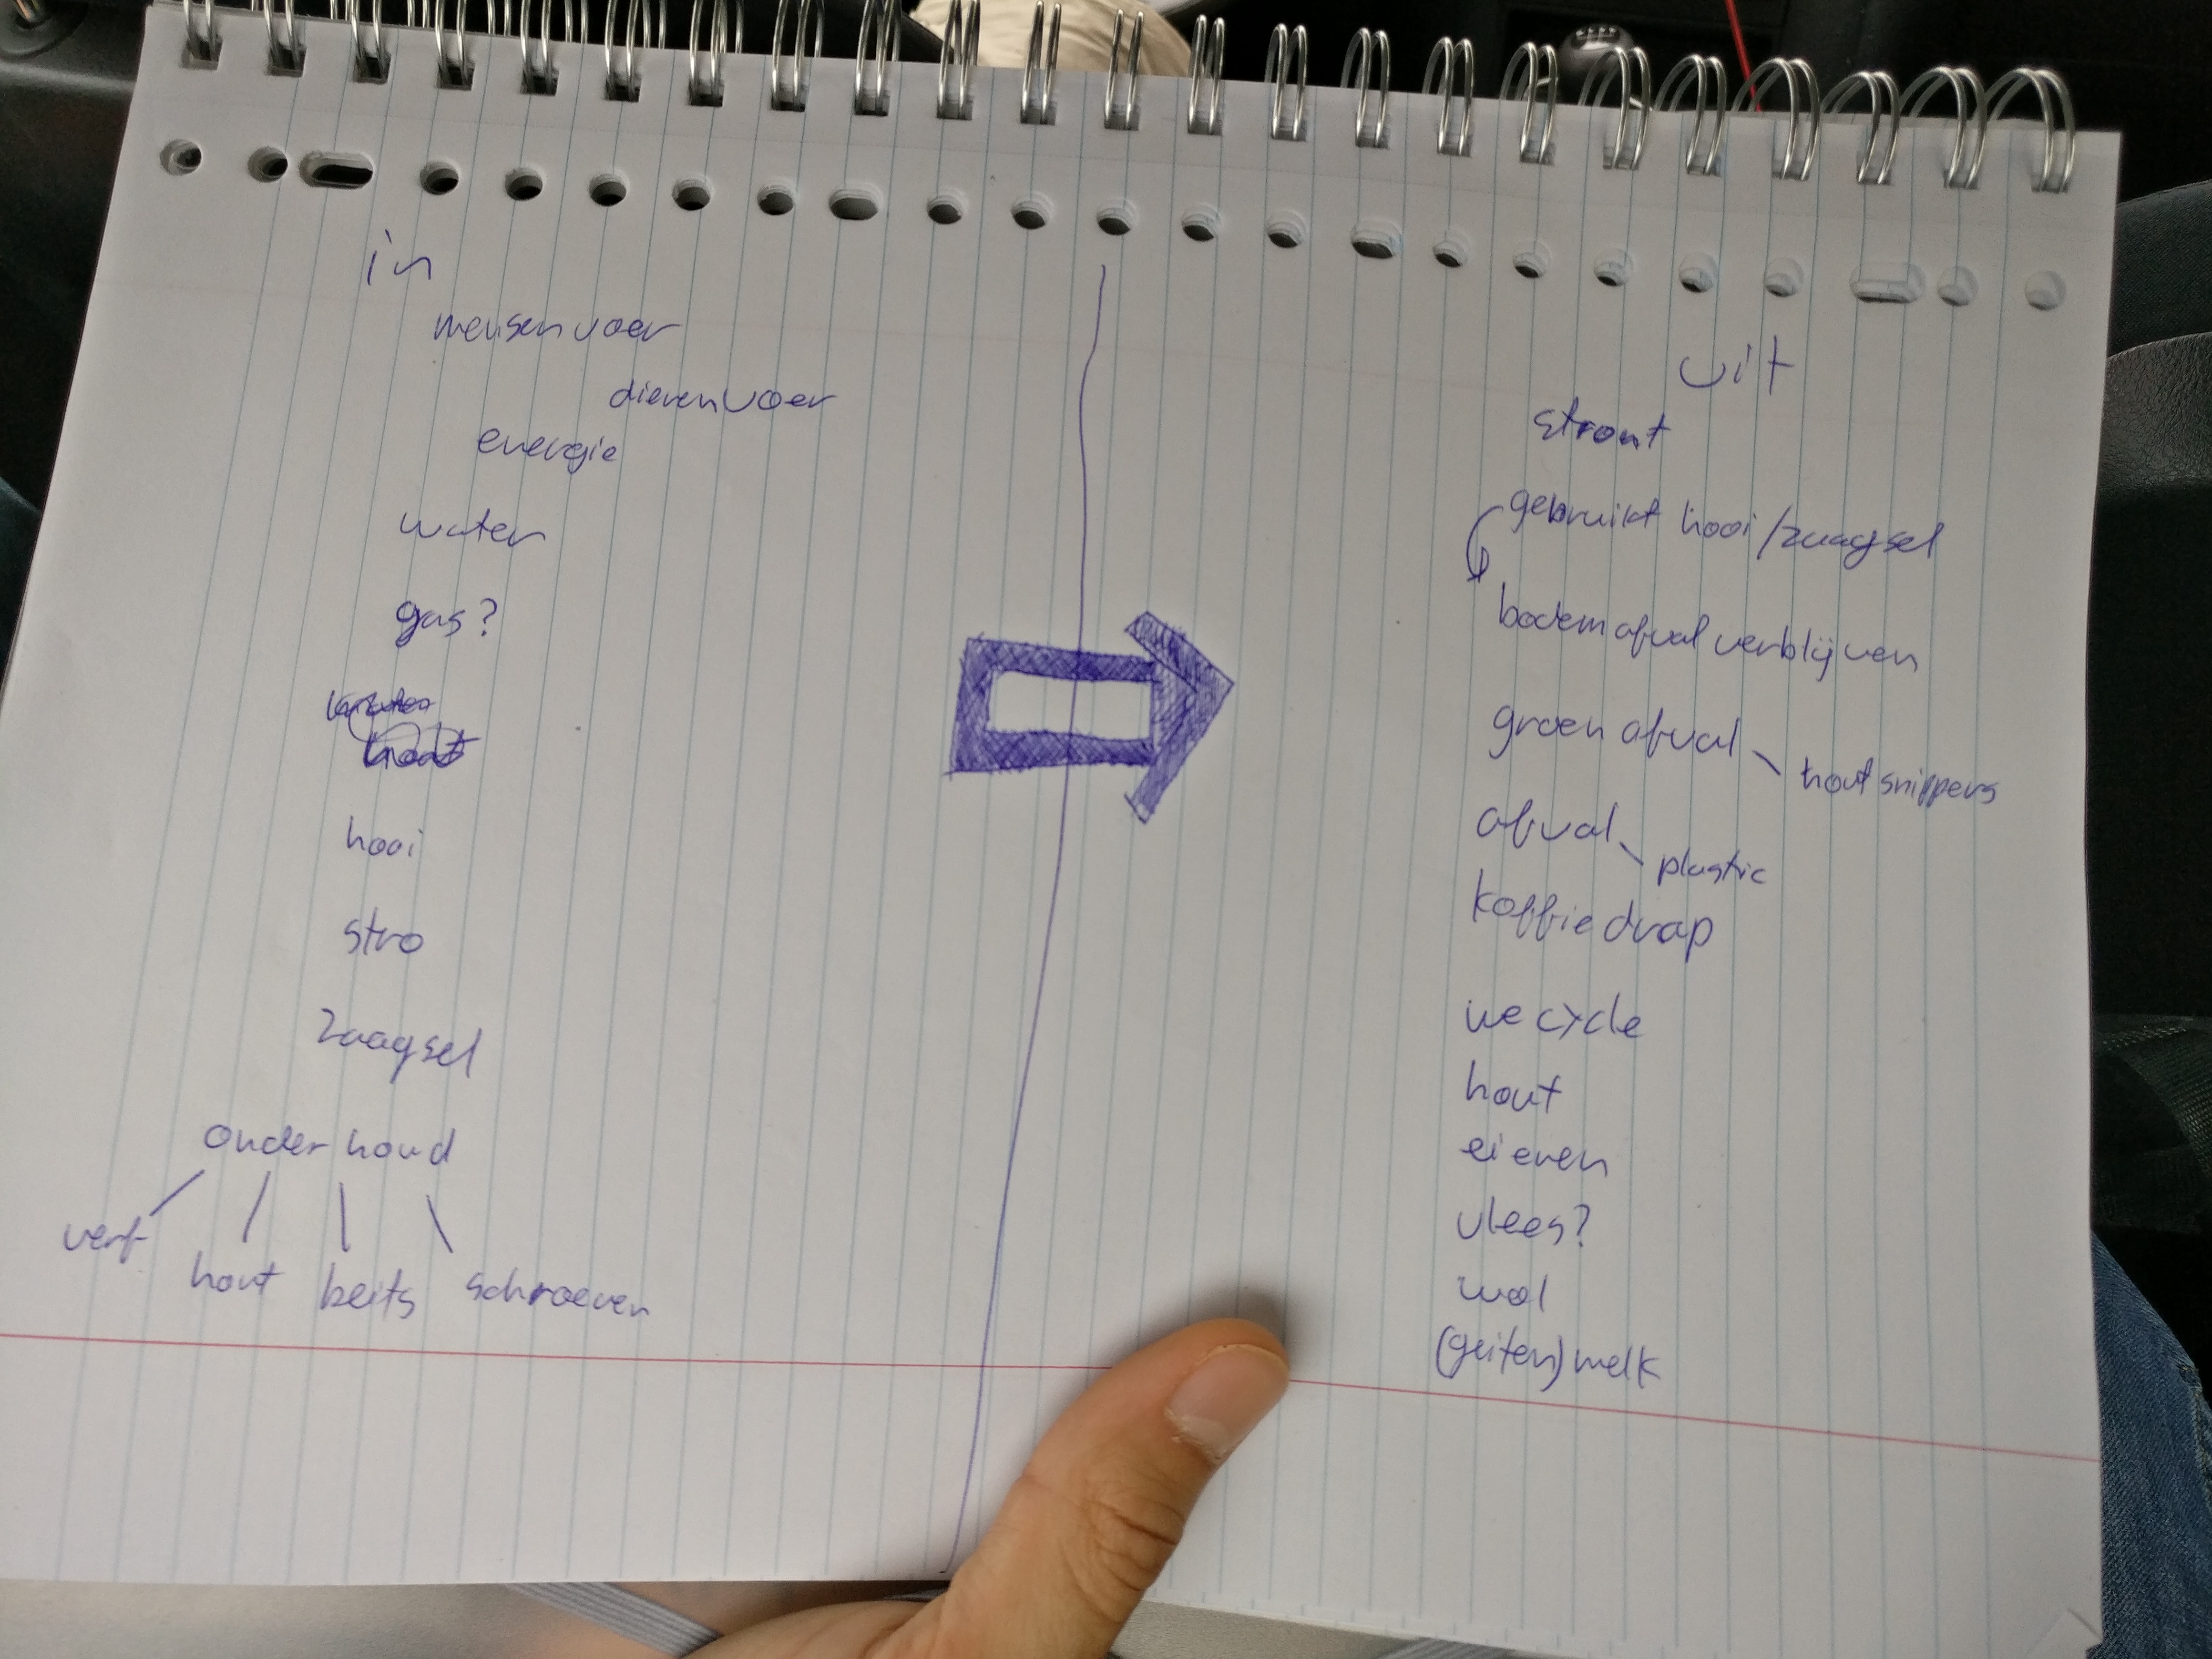 in
mensenvoer
dierenvoer
energie
water
gas?
hooi
stro
zaagsel
onderhoud
verf
hout beits schroeven
uit
stront
gebruikt hooi/zaagsel
bodem afval verblijven
groen afval
hout snippers
afval
plastic
koffiedrap
wecycle
hout
eieren
vlees?
wol
(geiten)melk